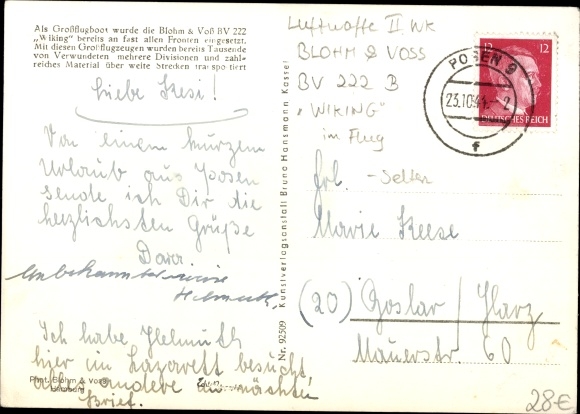 Als Großflugboot wurde die Blohm & Voß BV 222
„Wiking" bereits an fast allen Fronten eingesetzt.
Mit diesen Großflugzeugen wurden bereits Tausende
von Verwundeten mehrere Divisionen und zahl-
reiches Material über weite Strecken transportiert
Liebe Kesi!
Von einem kurzem
Urlaub aus Posen
sende ich Dir die
herzlichsten Grüße
Dora
Unbekannterweise
Helmuth
Ich habe Helmuth
hier im Lazarett besucht,
alles andere im nächsten
Brief.
Phot. Blohm & Voss
Hamburg
Nr. 92509 Kunstverlagsanstalt Bruno Hansmann Kassel
Luftwaffe II WK
BLOHM & VOSS
BV 222 B
„WIKING"
im Flug
-selten
POSEN 9
23.10.44.- 2
f
12 12
DEUTSCHES REICH
Frl.
Marie Keese
(20) Goslar/Harz
Mauerstr. 60
28€